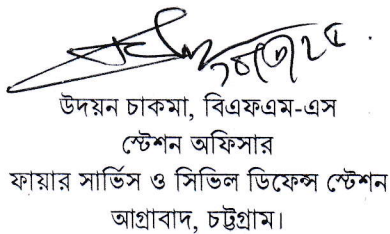 উদয়ন চাকমা, বিএফএম-এস
স্টেশন অফিসার
ফায়ার সার্ভিস ও সিভিল ডিফেন্স স্টেশন
আগ্রাবাদ, চট্টগ্রাম।